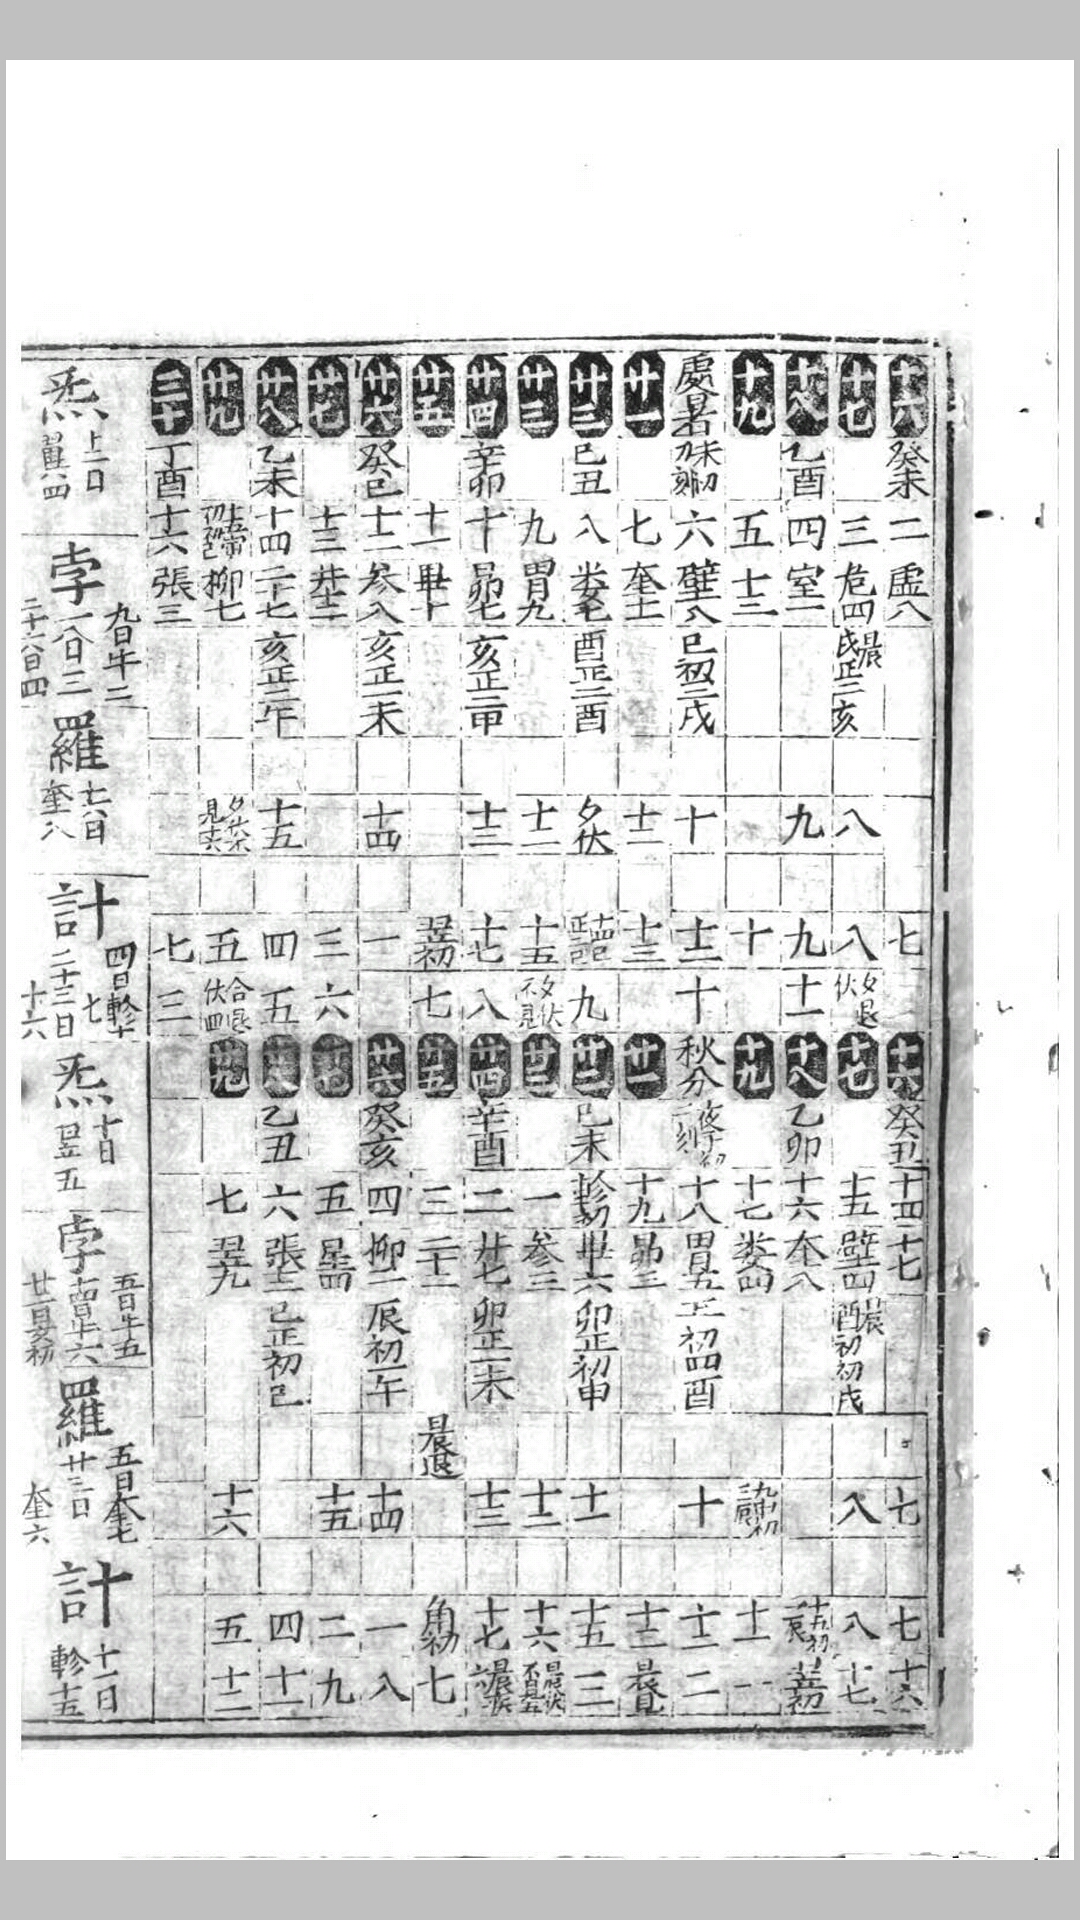 十六 癸未 二 虛八 七
十七 三 危四 晨 戌正三亥 八 八 夕退伏
十八 乙酉 四 室一 九 九 十一
十九 五 十三 十
處暑 未初 刻 六 壁八 巳初三戌 十 十二 十
廿一 七 奎十一 十二 十三
廿二 己丑 八 娄七 酉正二酉 夕伏 九
廿三 九 胃九 十二 十五 夕伏不見
廿四 辛卯 十 昴七 亥正二申 十三 十七 八
廿五 十一 畢十 翌初 七
廿六 癸巳 十二 參八 亥正一未 十四 一
廿七 十三 井十二 三 六
廿八 乙未 十四 二十七 亥正二午 十五 四 五
廿九 柳七 五 合退伏四
三十 丁酉 十六 張三 七 三
炁 上日 翼四
孛 九日牛二 一八日三 二十六日四
羅 十六日 奎八
計 四日軫十七 二十三日 十六
十六 癸丑 十四 十七 七 七 十六
十七 十五 壁四 晨 酉初初戌 八 八 十七
十八 乙卯 十六 奎八
十九 十七 娄四 十一 一
秋分 夜子初二刻 十八 胃五 正初四酉 十 十二 二
廿一 十九 昴三 十三 晨見
廿二 己未 軫初 畢六 卯正初申 十一 十五 三
廿三 一 參三 十二 十六
廿四 辛酉 二 廿七 卯正一未 十三 十七
廿五 三 二十二 晨退 角初 七
廿六 癸亥 四 柳二 辰初一午 十四 一 八
廿七 五 星四 十五 二 九
廿八 乙丑 六 張十二 巳正初巳 四 十一
廿九 七 翌九 十六 五 十二
炁 十日 翌五
孛 五日牛五
羅 五日奎七 廿三日 奎六
計 十一日 軫十五